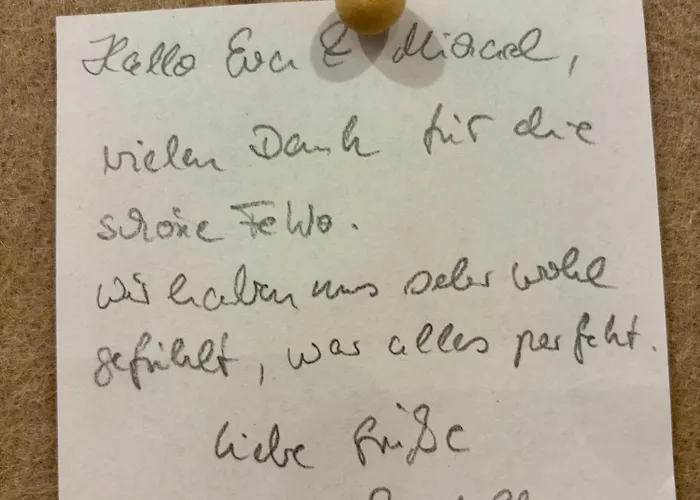 Hallo Eva & Michael,
vielen Dank für die
schöne FeWo.
Wir haben uns sehr wohl
gefühlt, war alles perfekt.
Liebe Grüße